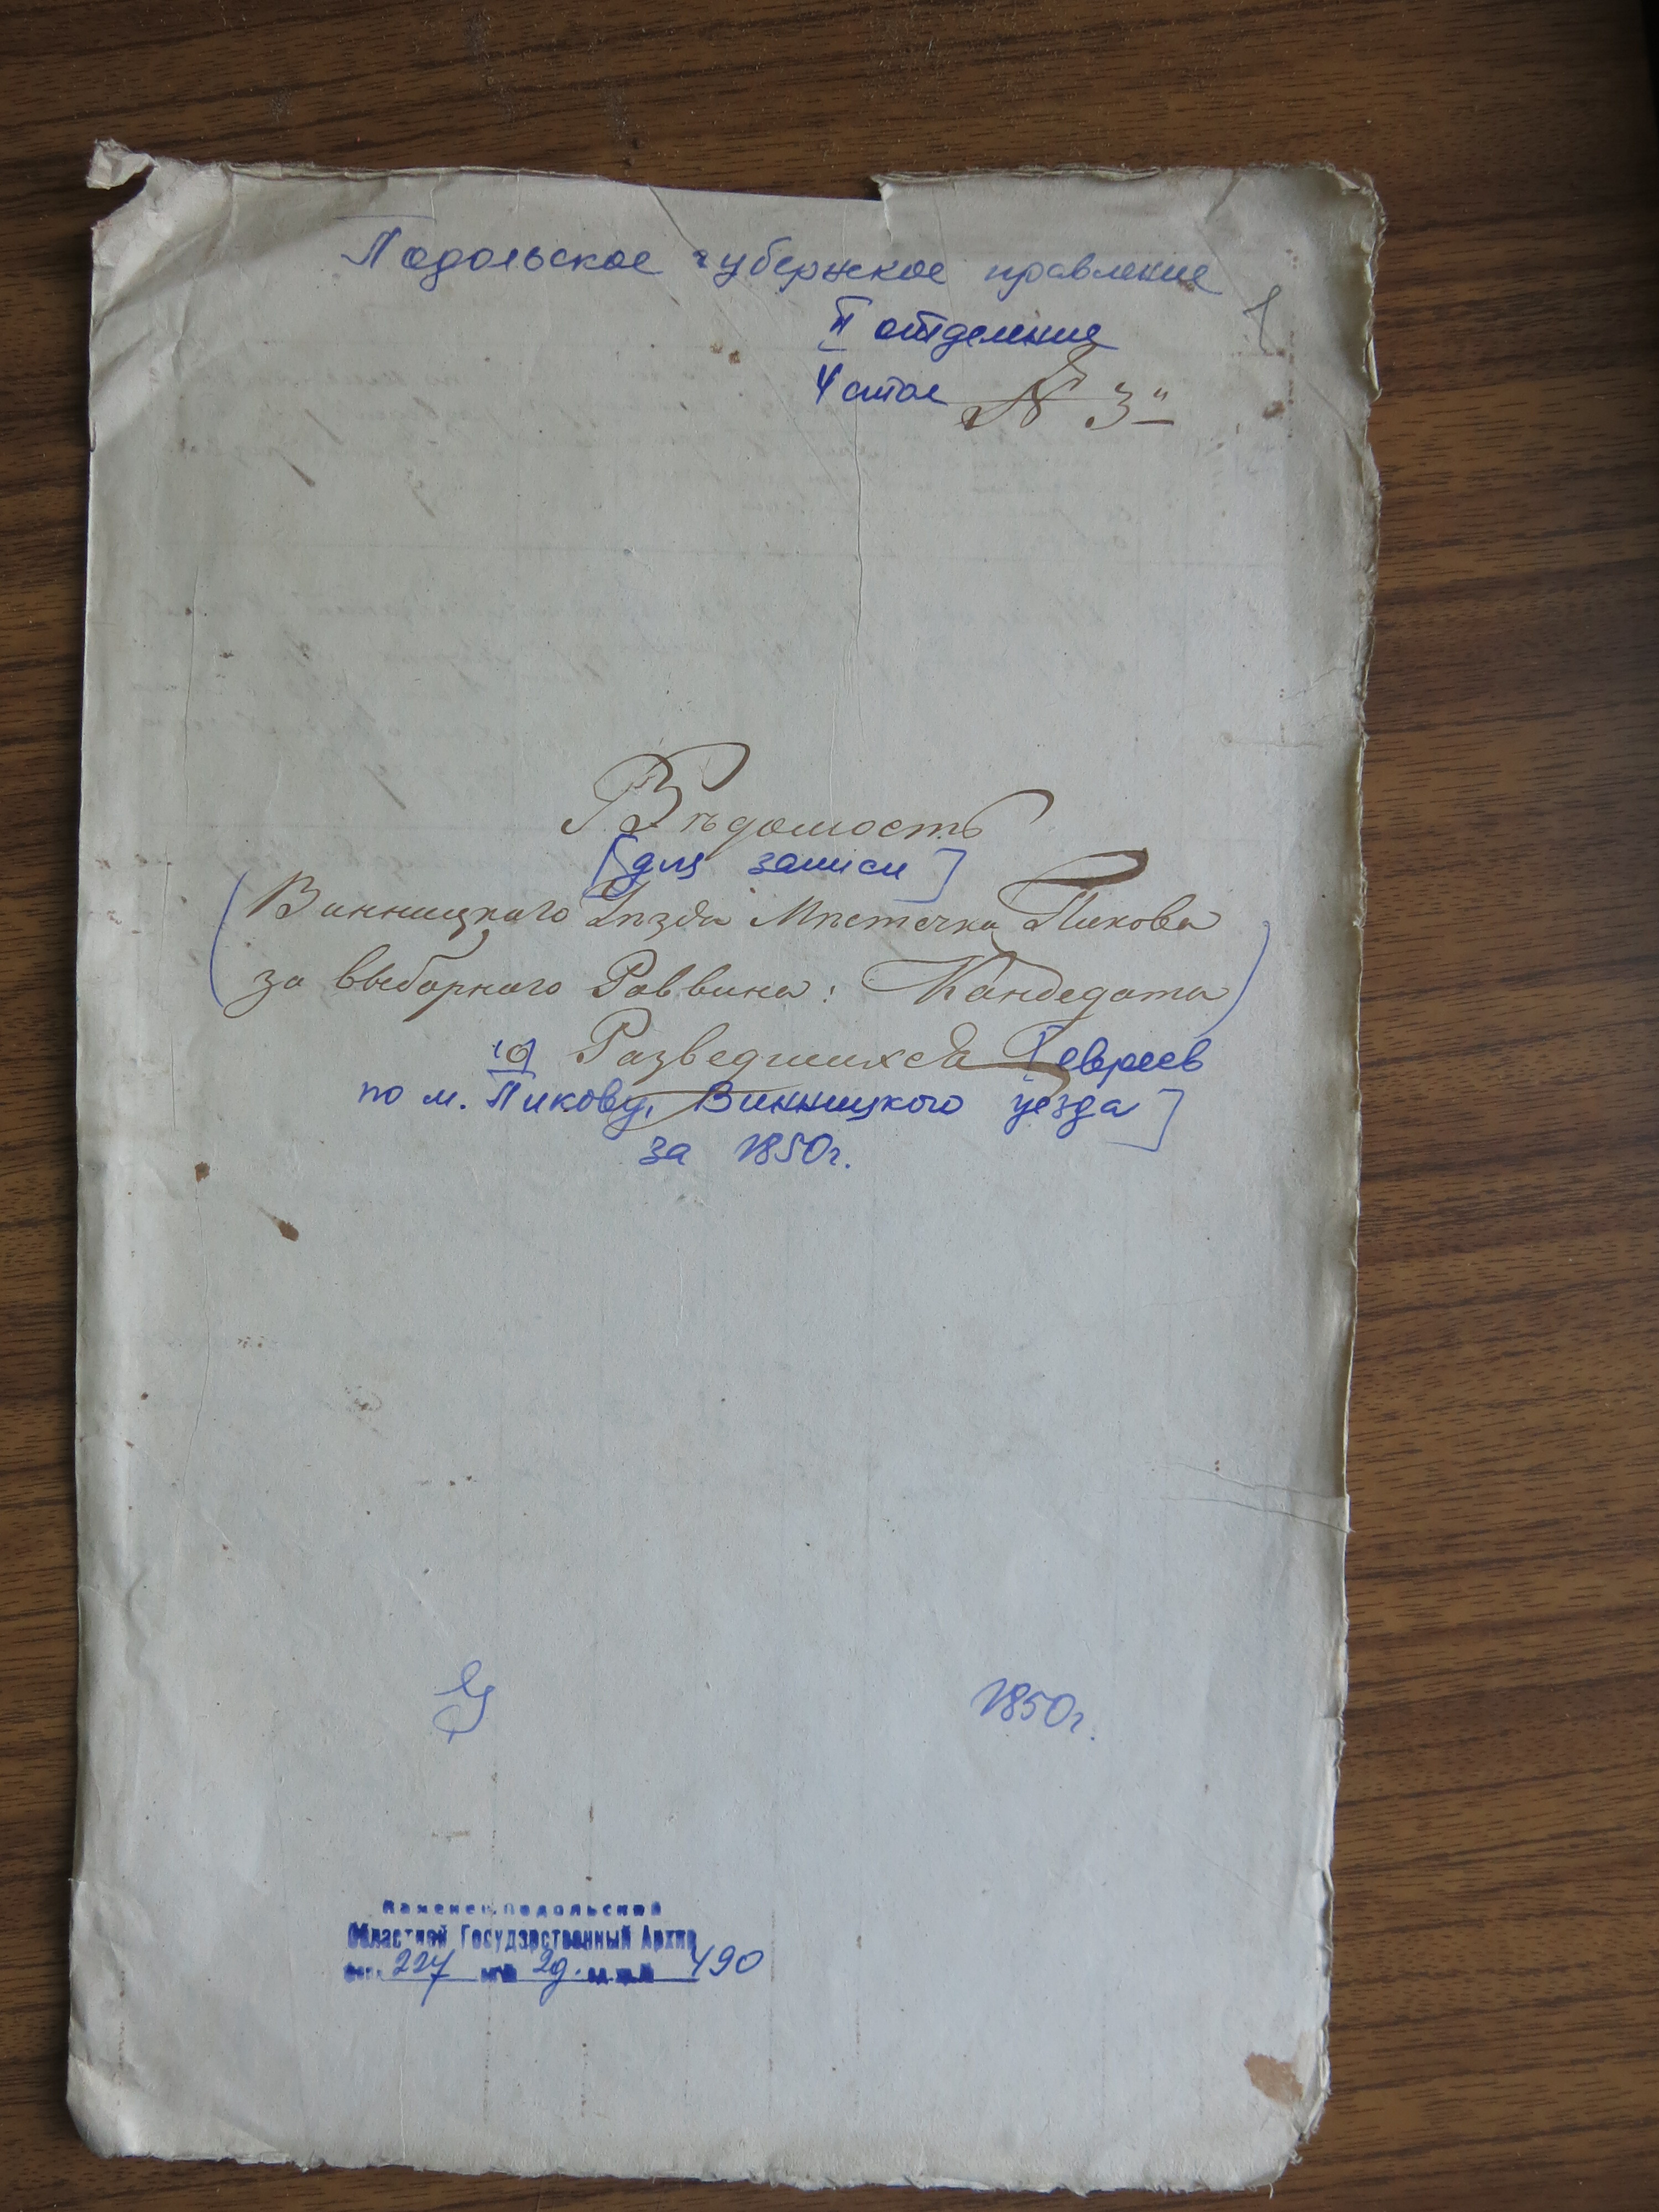 Подольское губернское правление
II отделение
4 стол № 3"
1
Вѣдомость
[для записи]
(Винницкаго Уѣзда Мѣстечка Пикова
за выборнаго Раввина: Кандедата)
"о" Разведшихся [евреев
по м. Пикову, Винницкого уезда]
за 1850г.
1850г.
Каменец-Подольский
Областной Государственный Архив
Фонд 227 оп№ 2д. ед.хр.№ 490